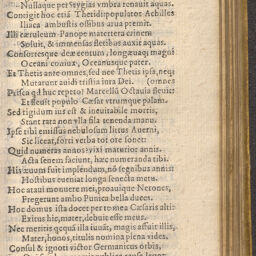 Nullaque per Stygias vmbra renauit aquas.
Contigit hoc etiā Thetidi: populator Achilles
Iliaca ambustis ossibus arua premit.
Illi cæruleum Panope matertera crinem
Soluit, & immensas fletibus auxit aquas.
Consortesque deæ centum, longæuaq; magni
Oceani coniux, Oceanusque pater.
Et Thetis ante omnes, sed nec Thetis ipsa, neq;
Mutarunt auidi tristia iura Dei. (omnes
Prisca qd huc repeto? Marcellū Octauia fleuit:
Et fleuit populo Cæsar vtrumque palam.
Sed rigidum ius est & ineuitabile mortis,
Stant rata non vlla fila tenenda manu.
Ipse tibi emissus nebulosum littus Auerni,
Sic liceat, forti verba tot ore sonet:
Quid numeras annos? vixi maturior annis.
Acta senem faciunt, hæc numeranda tibi.
His æuum fuit implendum, nō segnibus annis:
Hostibus eueniat longa senecta meis.
Hoc ataui monuere mei, proauique Nerones,
Fregerunt ambo Punica bella duces.
Hoc domus ista docet per te mea Cæsaris alti:
Exitus hic, mater, debuit esse meus.
Nec meritis quequā illa iuuāt, magis affuit illis,
Mater, honos, titulis nomina plena vides.
Consul & ignoti victor Germanicus orbis,